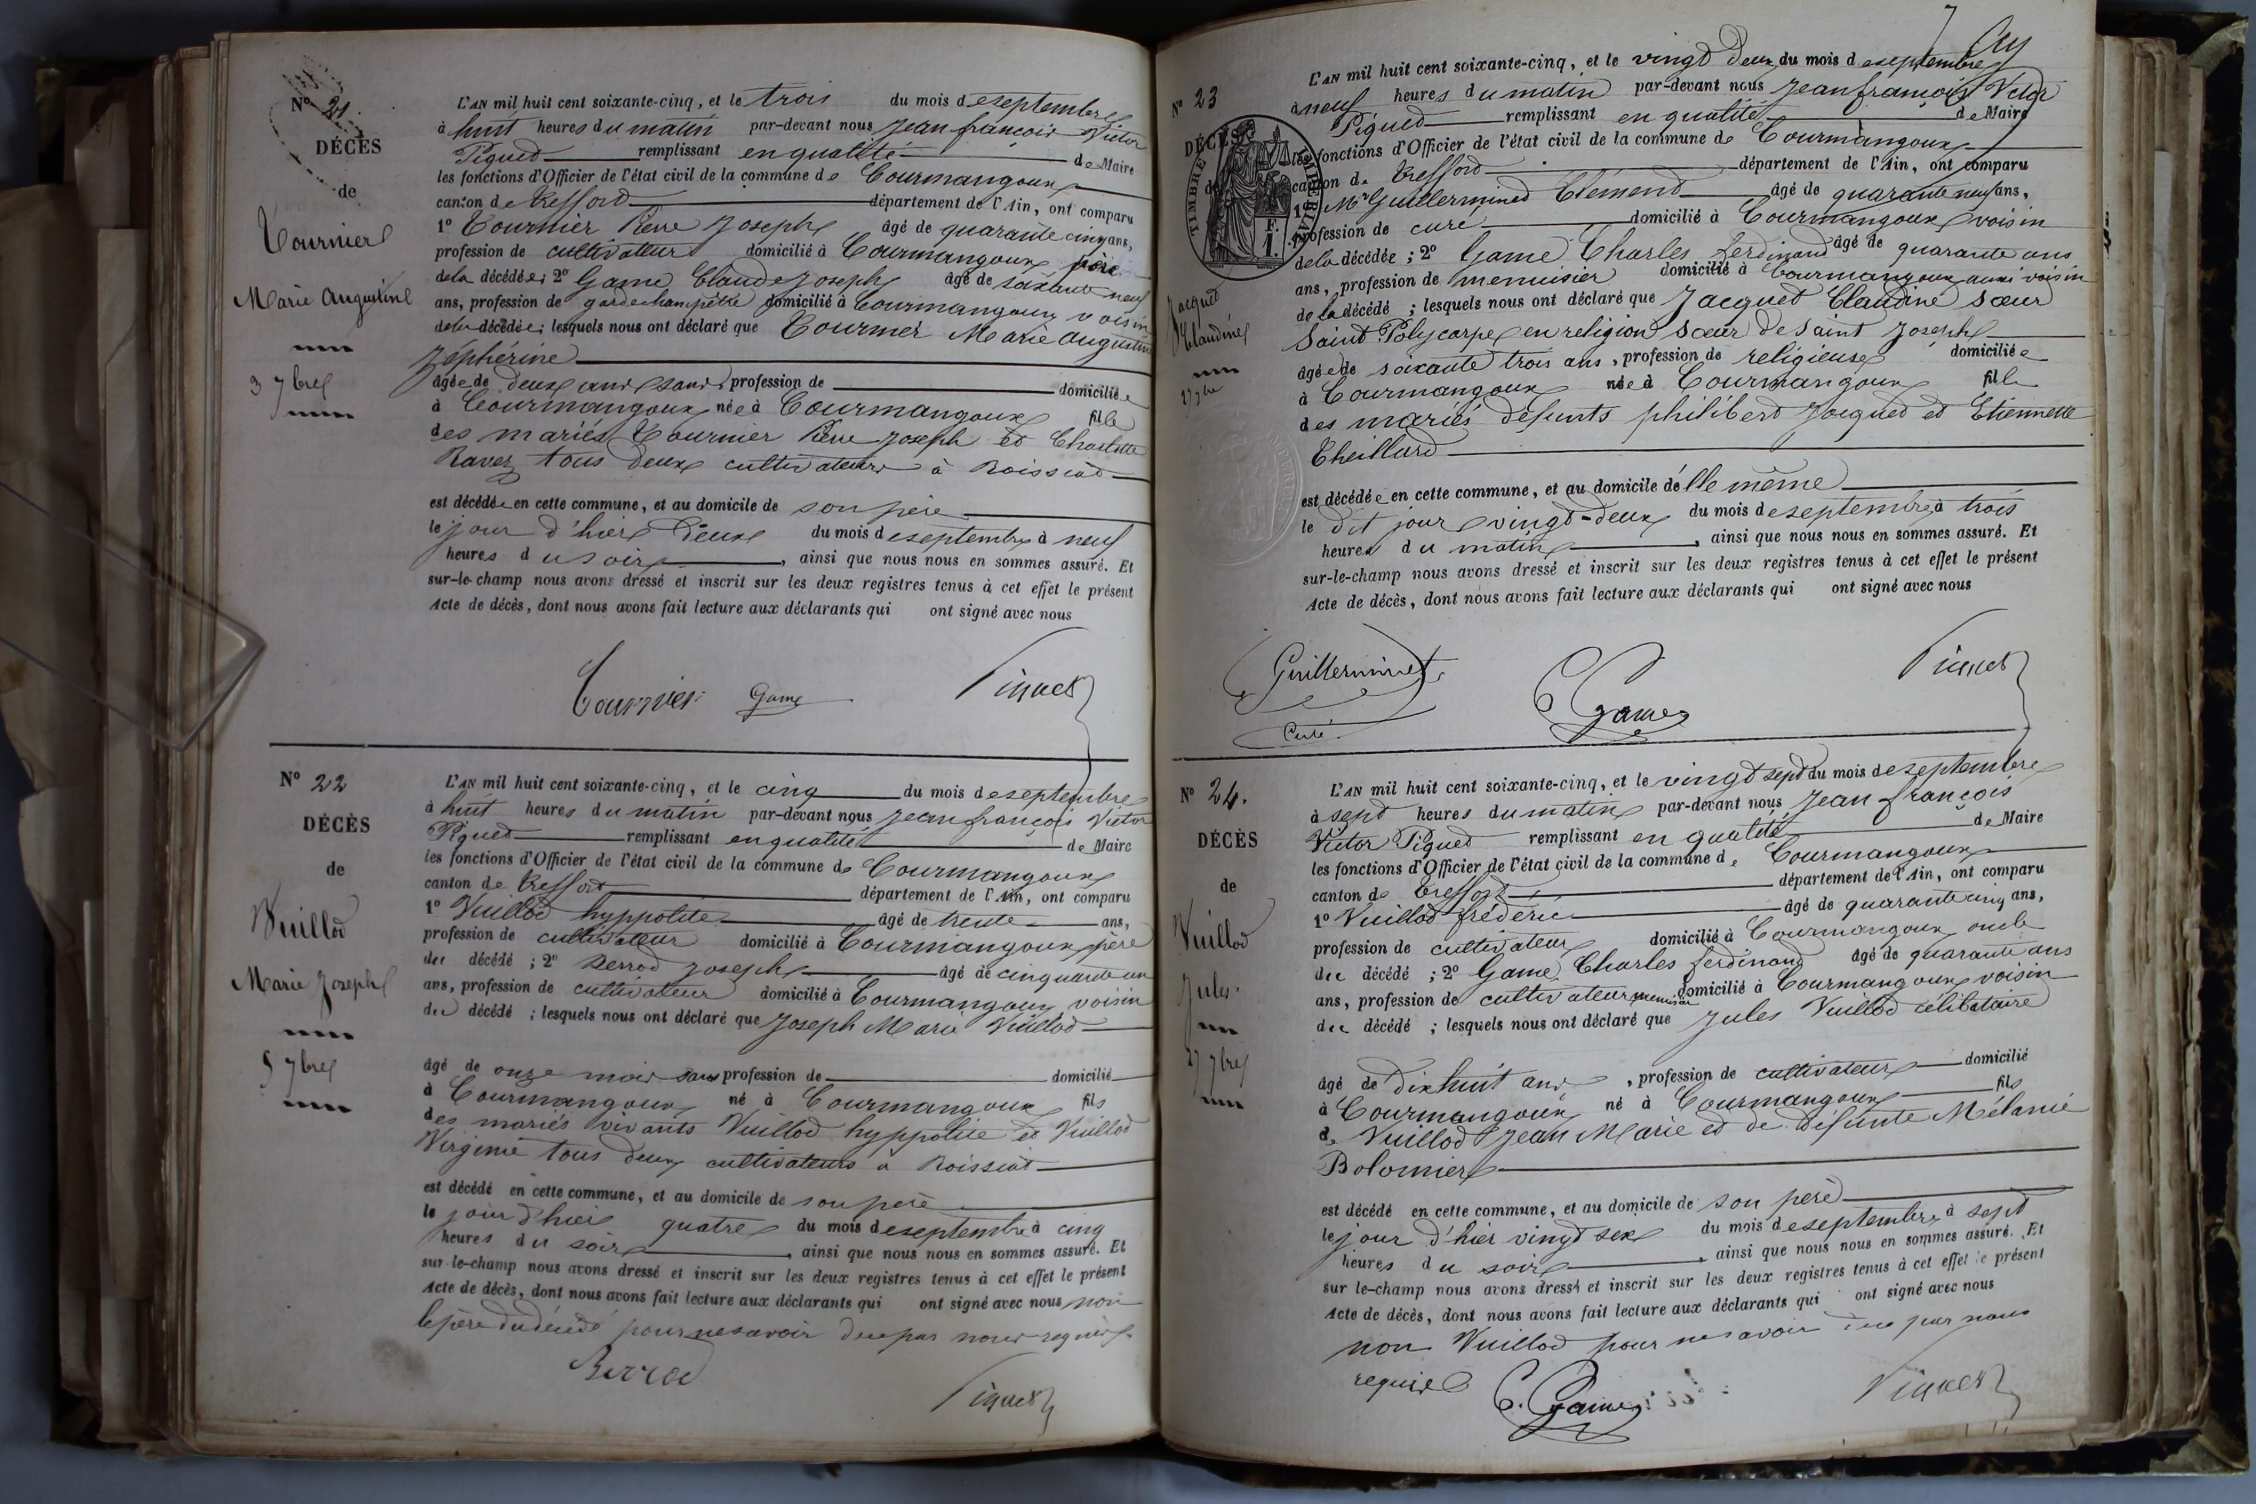 N° 21.
DÉCÈS
de
Tournier
Marie Augustine
3 7bre
L'AN mil huit cent soixante-cinq, et le trois du mois de septembre
à huit heures du matin par-devant nous Jean françois Victor
Piquet remplissant en qualité de Maire
les fonctions d'Officier de l'état civil de la commune de Courmangoux
canton de Treffort département de l'Ain, ont comparu
1° Tournier Pierre Joseph âgé de quarante cinq ans,
profession de cultivateur domicilié à Courmangoux père
de la décédée; 2° Game Claude Joseph âgé de soixante neuf
ans, profession de garde champêtre domicilié à Courmangoux voisin
de la décédée; lesquels nous ont déclaré que Tournier Marie Augustine
Zéphérine
âgée de deux ans sans profession de domiciliée
à Courmangoux née à Courmangoux fille
des mariés Tournier Pierre Joseph et Charlotte
Ravet tous deux cultivateurs à Roissiat
est décédée en cette commune, et au domicile de son père
le jour d'hier deux du mois de septembre à neuf
heures du soir, ainsi que nous nous en sommes assuré. Et
sur-le-champ nous avons dressé et inscrit sur les deux registres tenus à cet effet le présent
Acte de décès, dont nous avons fait lecture aux déclarants qui ont signé avec nous
Tournier Game Piquet
N° 22
DÉCÈS
de
Vuillod
Marie Joseph
5 7bre
L'AN mil huit cent soixante-cinq, et le cinq du mois de septembre
à huit heures du matin par-devant nous Jean françois Victor
Piquet remplissant en qualité de Maire
les fonctions d'Officier de l'état civil de la commune de Courmangoux
canton de Treffort département de l'Ain, ont comparu
1° Vuillod hyppolite âgé de trente ans,
profession de cultivateur domicilié à Courmangoux père
du décédé; 2° Berrod Joseph âgé de cinquante un
ans, profession de cultivateur domicilié à Courmangoux voisin
du décédé; lesquels nous ont déclaré que Joseph Marie Vuillod
âgé de onze mois sans profession de domicilié
à Courmangoux né à Courmangoux fils
des mariés vivants Vuillod hyppolite et Vuillod
Virginie tous deux cultivateurs à Roissiat
est décédé en cette commune, et au domicile de son père
le jour d'hier quatre du mois de septembre à cinq
heures du soir, ainsi que nous nous en sommes assuré. Et
sur-le-champ nous avons dressé et inscrit sur les deux registres tenus à cet effet le présent
Acte de décès, dont nous avons fait lecture aux déclarants qui ont signé avec nous non
le père du décédé pour ne savoir de ce par nous requis
Berrod
Piquet
N° 23
DÉCÈS
TIMBRE IMPÉRIAL
F.
1.
Jacquet
Claudine
L'AN mil huit cent soixante-cinq, et le vingt deux du mois de septembre
à neuf heures du matin par-devant nous Jean françois Victor
Piquet remplissant en qualité de Maire
les fonctions d'Officier de l'état civil de la commune de Courmangoux
canton de Treffort département de l'Ain, ont comparu
1° Mr Guillerminet Clément âgé de quarante neuf ans,
profession de curé domicilié à Courmangoux voisin
de la décédée; 2° Game Charles ferdinand âgé de quarante ans
ans, profession de menuisier domicilié à Courmangoux aussi voisin
de la décédé; lesquels nous ont déclaré que Jacquet Claudine sœur
Saint Polycarpe en religion sœur de Saint Joseph
âgée de soixante trois ans, profession de religieuse domiciliée
à Courmangoux née à Courmangoux fille
des mariés défunts philibert Jacquet et Etiennette
Theillard
est décédée en cette commune, et au domicile d'elle même
le dit jour vingt-deux du mois de septembre à trois
heures du matin, ainsi que nous nous en sommes assuré. Et
sur-le-champ nous avons dressé et inscrit sur les deux registres tenus à cet effet le présent
Acte de décès, dont nous avons fait lecture aux déclarants qui ont signé avec nous
Guillerminet
Curé
C Game
Piquet
N° 24.
DÉCÈS
de
Vuillod
Jules
27 7bre
L'AN mil huit cent soixante-cinq, et le vingt sept du mois de septembre
à sept heures du matin par-devant nous Jean françois
Victor Piquet remplissant en qualité de Maire
les fonctions d'Officier de l'état civil de la commune de Courmangoux
canton de Treffort département de l'Ain, ont comparu
1° Vuillod frédéric âgé de quarante cinq ans,
profession de cultivateur domicilié à Courmangoux oncle
du décédé; 2° Game Charles ferdinand âgé de quarante ans
ans, profession de cultivateur menuisier domicilié à Courmangoux voisin
du décédé; lesquels nous ont déclaré que Jules Vuillod célibataire
âgé de dix huit ans, profession de cultivateur domicilié
à Courmangoux né à Courmangoux fils
de Vuillod Jean Marie et de défunte Mélanie
Bolomier
est décédé en cette commune, et au domicile de son père
le jour d'hier vingt six du mois de septembre à sept
heures du soir, ainsi que nous nous en sommes assuré. Et
sur le-champ nous avons dressé et inscrit sur les deux registres tenus à cet effet le présent
Acte de décès, dont nous avons fait lecture aux déclarants qui ont signé avec nous
non Vuillod pour ne savoir de ce par nous
requis
C. Game
Piquet